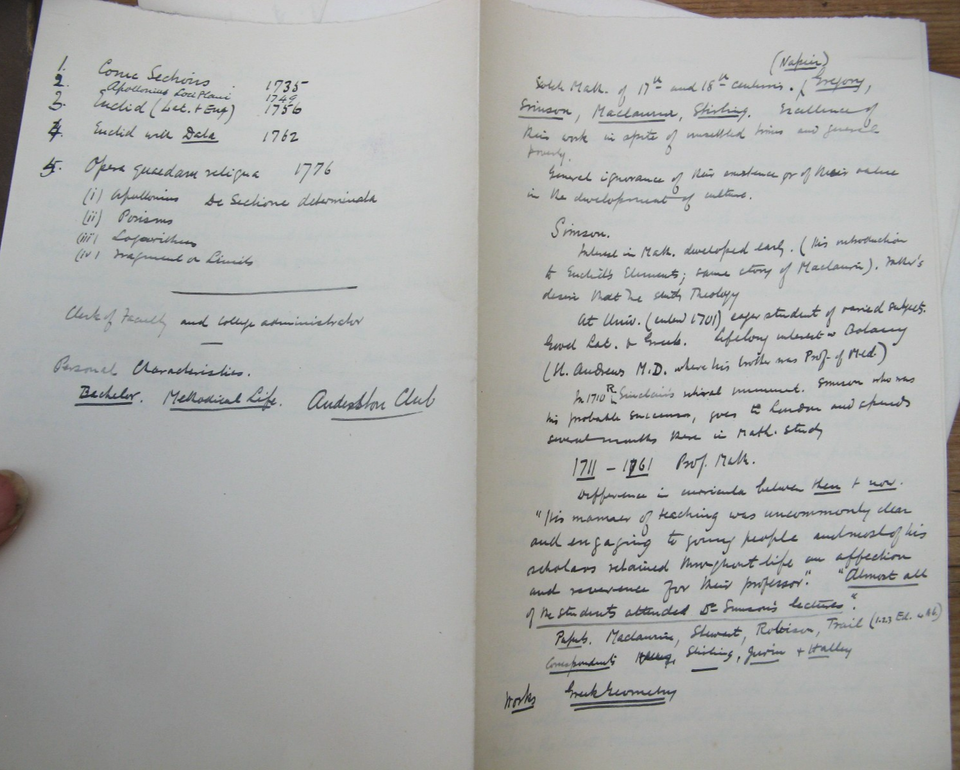 1. Conic Sections 1735
2. Apollonius Loci Plani 1749
3. Euclid (Lat. + Eng) 1756
4. Euclid with Data 1762
5. Opera quaedam reliqua 1776
(i) Apollonius De Sectione determinata
(ii) Porisms
(iii) Logarithms
(iv) Fragment on Limits
Clerk of Faculty and college administrator
Personal Characteristics.
Bachelor. Methodical Life. Anderston Club
(Napier)
Scotch Math. of 17th and 18th centuries. (Gregory,
Simson, Maclaurin, Stirling. Excellence of
their work in spite of unsettled times and general
poverty.
General ignorance of their existence or of their value
in the development of culture.
Simson.
Interest in Math. developed early. (His introduction
to Euclid's Elements; same story of Maclaurin). Father's
desire that he study Theology
At Univ. (entered 1701) eager student of varied subjects.
Good Lat. & Greek. Lifelong interest in Botany
(St. Andrews M.D. where his brother was Prof. of Med.)
In 1710 R. Sinclair's retiral imminent. Simson who was
his probable successor, goes to London and spends
several months there in Math. study
1711 - 1761 Prof. Math.
Difference in curricula between then & now.
"His manner of teaching was uncommonly clear
and engaging to young people and most of his
scholars retained throughout life an affection
and reverence for their professor." "Almost all
of the students attended Dr Simson's lectures".
Pupils. Maclaurin, Stewart, Robison, Trail (1.2.3 Ed. 4 Ab)
Correspondents Stirling, Jurin + Halley
Works Greek Geometry